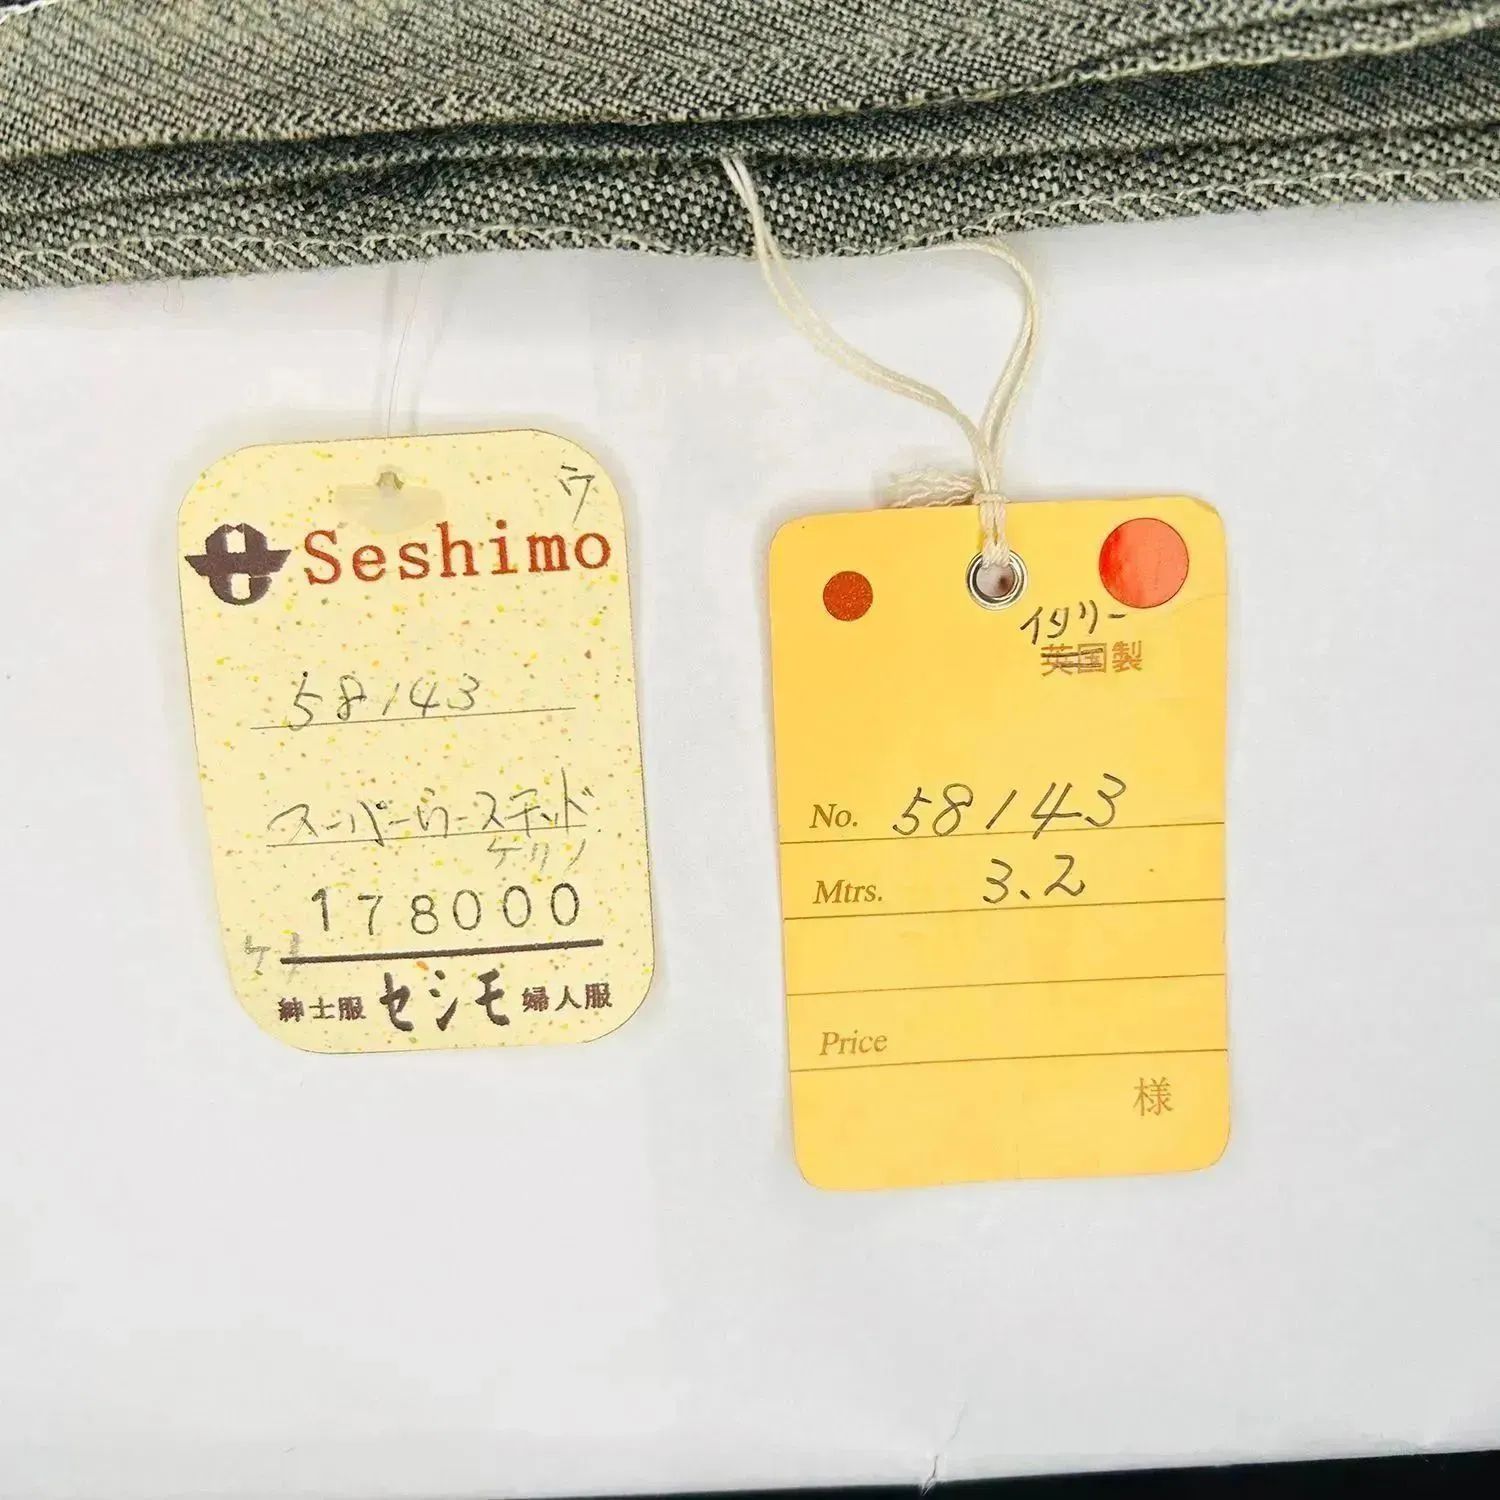 ウ
Seshimo
58143
スーパーウーステッド
178000
紳士服 セシモ 婦人服
イタリー
英国製
No. 58143
Mtrs. 3.2
Price
様